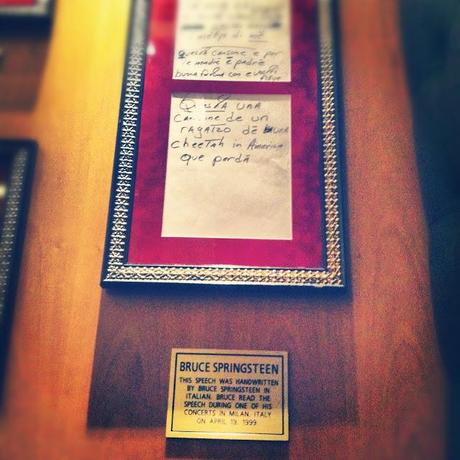 di me
Questa canzone e per
le madre e padre
buona fortuna con e
Questa una
Canzone de un
ragazzo de una
cheetah in America
que perdà
BRUCE SPRINGSTEEN
THIS SPEECH WAS HANDWRITTEN
BY BRUCE SPRINGSTEEN IN
ITALIAN. BRUCE READ THE
SPEECH DURING ONE OF HIS
CONCERTS IN MILAN, ITALY
ON APRIL 19, 1999